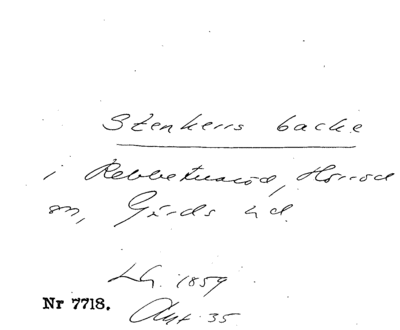 Stenkers backe
i Rebbetuaröd, Hörröd
sn, Gärds hd.
LA. 1859
Akt 35
Nr 7718.